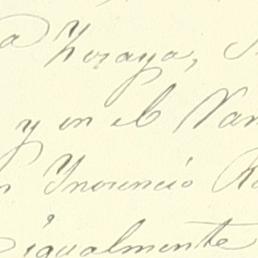 a Zoraya,
y en el Van
Inocencio Ro
igualmente